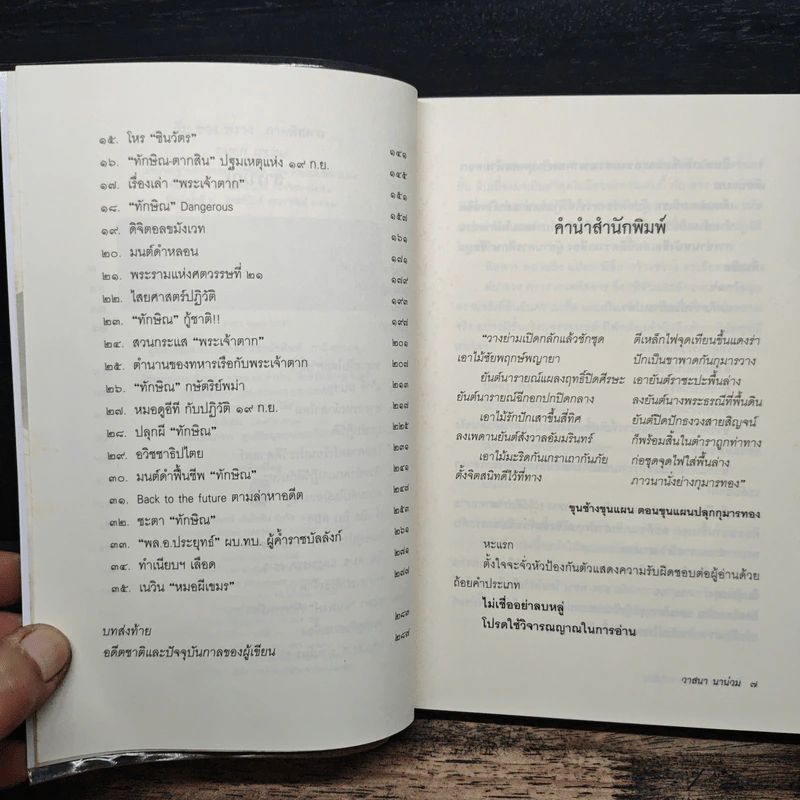 ๑๕. โหร “ชินวัตร” ๑๔๑
๑๖. “ทักษิณ-ตากสิน” ปฐมเหตุแห่ง ๑๙ ก.ย. ๑๔๕
๑๗. เรื่องเล่า “พระเจ้าตาก” ๑๕๑
๑๘. “ทักษิณ” Dangerous ๑๕๗
๑๙. ดิจิตอลขมังเวท ๑๖๑
๒๐. มนต์ดำหลอน ๑๗๑
๒๑. พระรามแห่งศตวรรษที่ ๒๑ ๑๗๙
๒๒. ไสยศาสตร์ปฏิวัติ ๑๙๓
๒๓. “ทักษิณ” กู้ชาติ!! ๑๙๘
๒๔. สวนกระแส “พระเจ้าตาก” ๒๐๑
๒๕. ตำนานของทหารเรือกับพระเจ้าตาก ๒๐๗
๒๖. “ทักษิณ” กษัตริย์พม่า ๒๑๓
๒๗. หมอดูอีที กับปฏิวัติ ๑๙ ก.ย. ๒๑๗
๒๘. ปลุกผี “ทักษิณ” ๒๒๕
๒๙. อวิชชาธิปไตย ๒๓๑
๓๐. มนต์ดำฟื้นชีพ “ทักษิณ” ๒๔๑
๓๑. Back to the future ตามล่าหาอดีต ๒๔๗
๓๒. ชะตา “ทักษิณ” ๒๕๓
๓๓. “พล.อ.ประยุทธ์” ผบ.ทบ. ผู้ค้ำราชบัลลังก์ ๒๖๑
๓๔. ทำเนียบฯ เลือด ๒๗๑
๓๕. เนวิน “หมอผีเขมร” ๒๗๗
บทส่งท้าย ๒๘๓
อดีตชาติและปัจจุบันกาลของผู้เขียน ๒๘๗
คำนำสำนักพิมพ์
“วางย่ามเปิดกลักแล้วชักชุด ตีเหล็กไฟจุดเทียนขึ้นแดงร่า
เอาไม้ชัยพฤกษ์พญายา ปักเป็นขาพาดกันกุมารวาง
ยันต์นารายณ์แผลงฤทธิ์ปิดศีรษะ เอายันต์ราชะปะพื้นล่าง
ยันต์นารายณ์ฉีกอกปกปิดกลาง ลงยันต์นางพระธรณีที่พื้นดิน
เอาไม้รักปักเสาขึ้นสี่ทิศ ยันต์ปิดปักธงวงสายสิญจน์
ลงเพดานยันต์สังวาลอัมมรินทร์ ก็พร้อมสิ้นในตำราถูกท่าทาง
เอาไม้มะริดกันเกราเถากันภัย ก่อชุดจุดไฟใส่พื้นล่าง
ตั้งจิตสนิทดีไว้ที่ทาง ภาวนานั่งย่างกุมารทอง”
ขุนช้างขุนแผน ตอนขุนแผนปลุกกุมารทอง
ทะแรก
ตั้งใจจะจั่วหัวป้องกันตัวแสดงความรับผิดชอบต่อผู้อ่านด้วย
ถ้อยคำประเภท
ไม่เชื่ออย่าลบหลู่
โปรดใช้วิจารณญาณในการอ่าน
วาสนา นาน่วม ๗